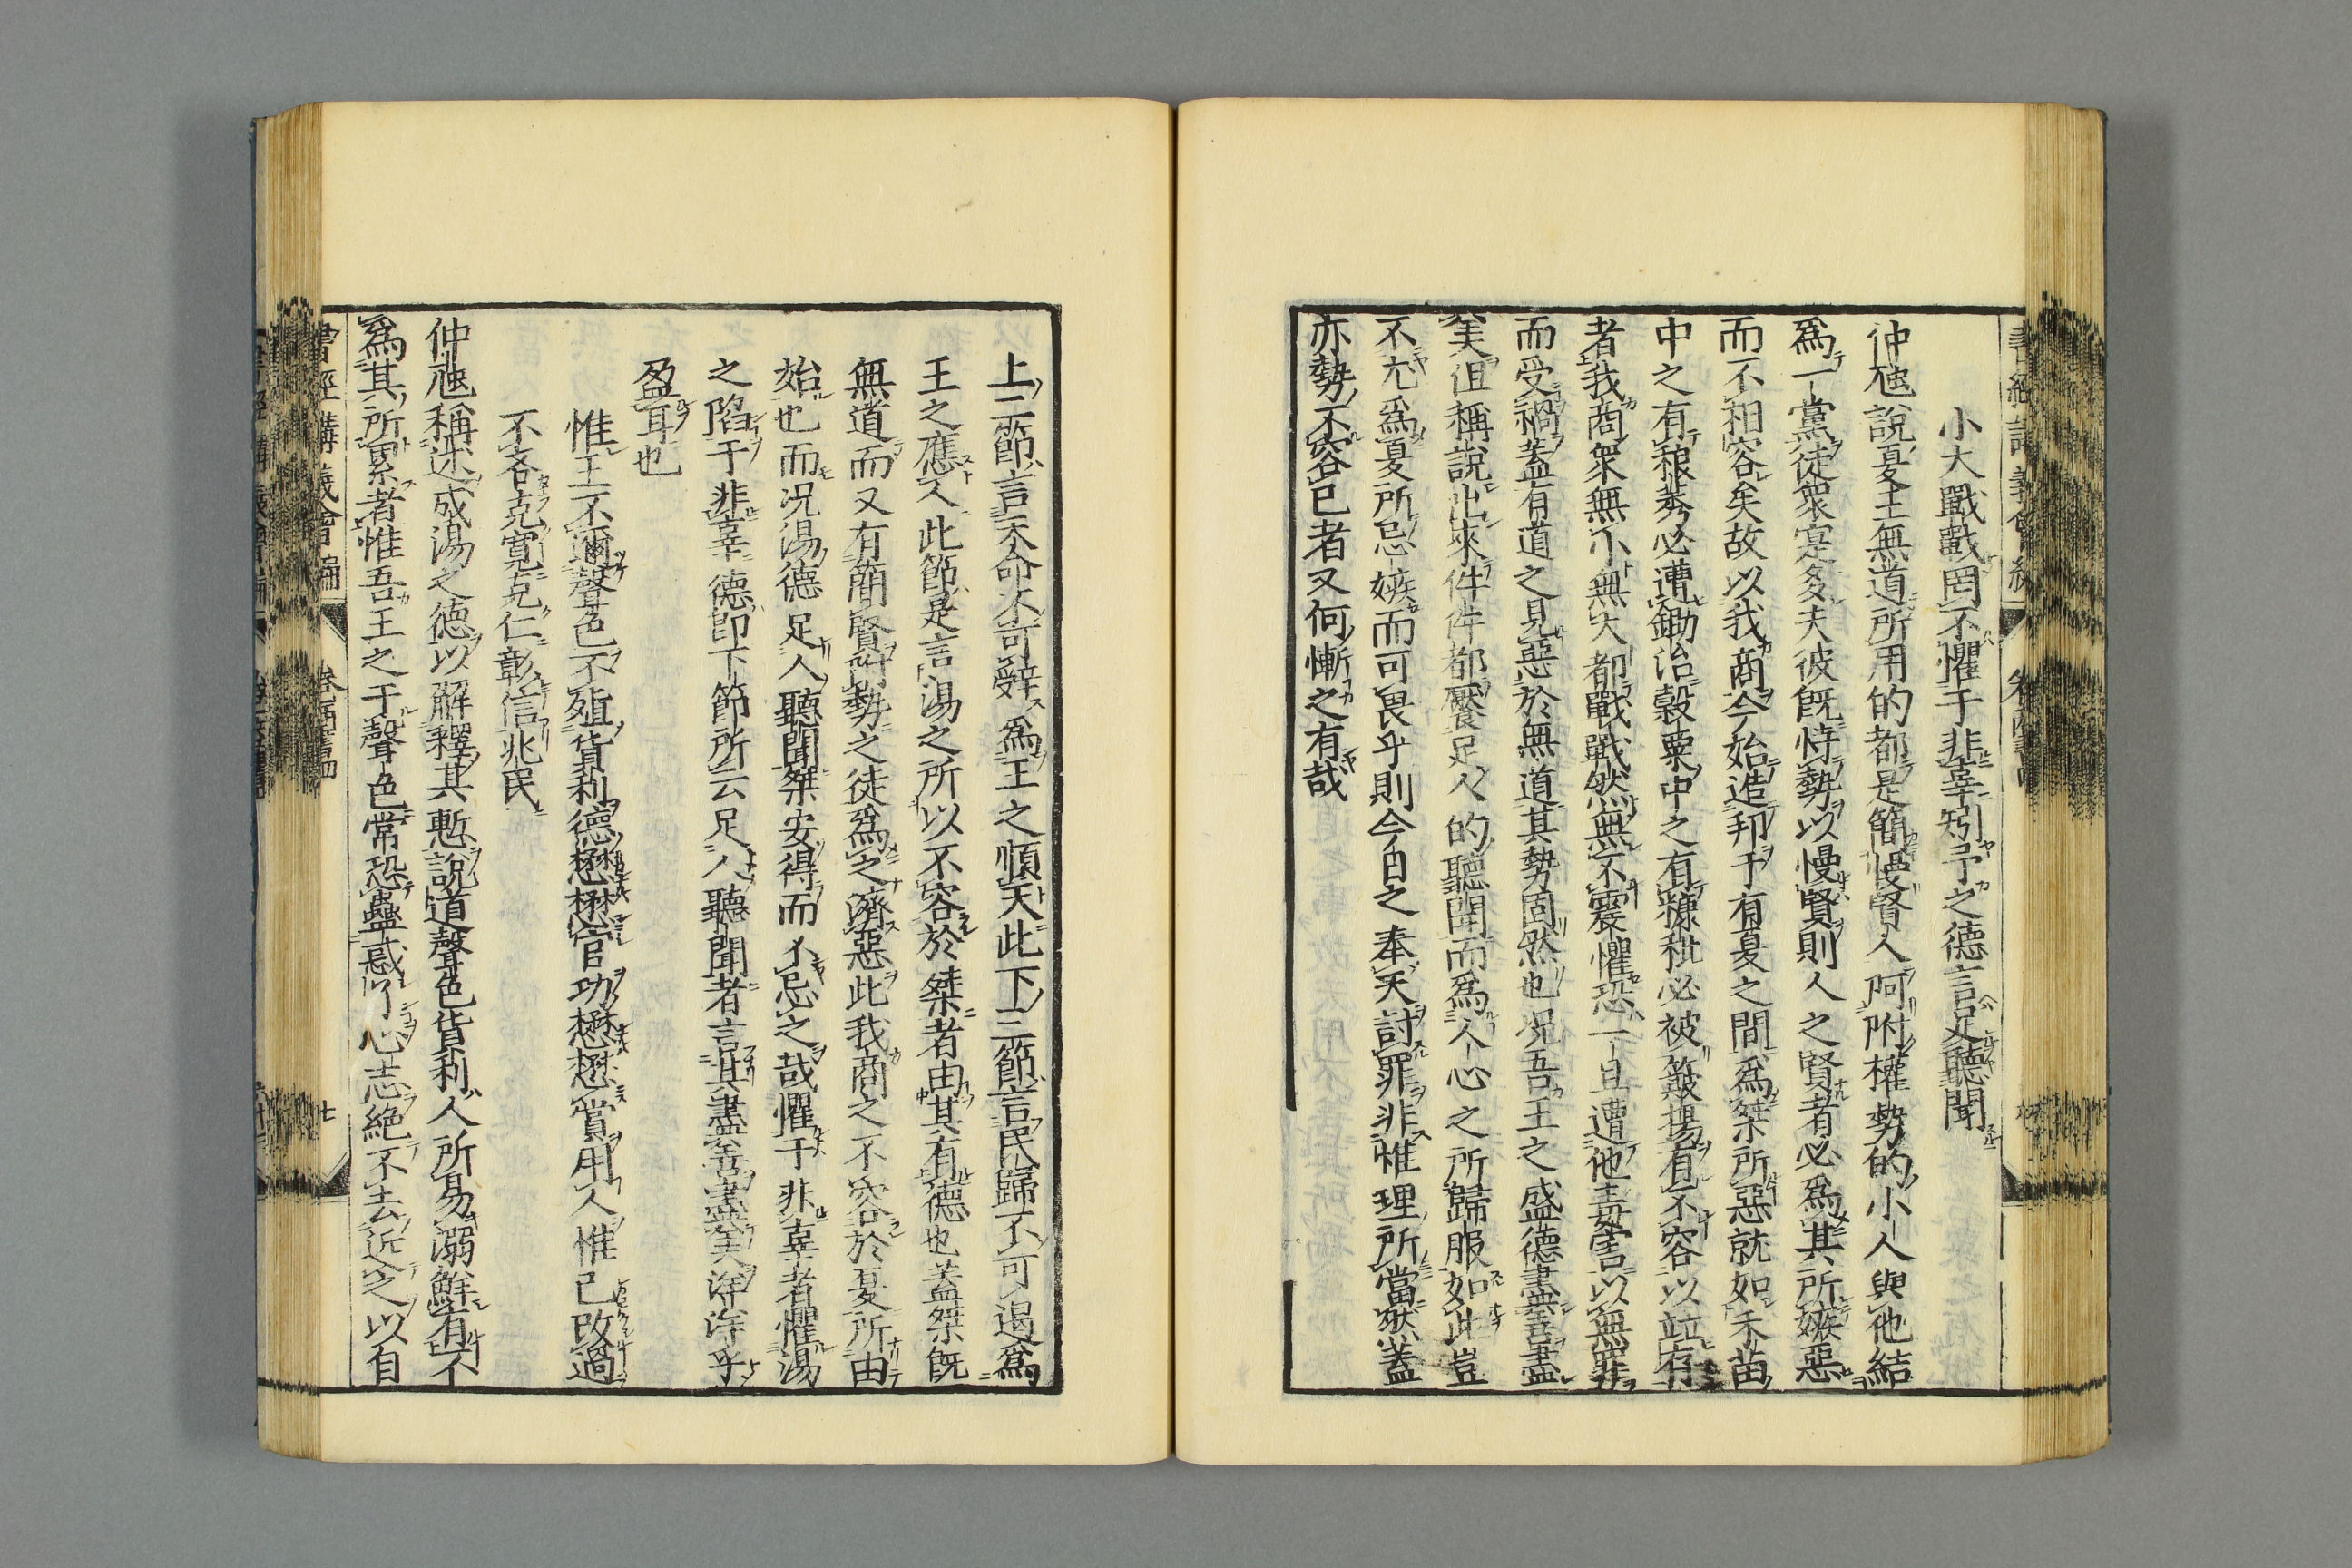 小大戰戰罔不懼于非辜矧予之德言足聽聞
仲虺說夏王無道所用的都是簡慢賢人阿附權勢的小人與他結
爲一黨徒衆寔多夫彼旣恃勢以慢賢則人之賢者必爲其所嫉惡
而不相容矣故以我商今始造邦于有夏之間爲桀所惡就如禾苗
中之有稂莠必遭鋤治穀粟中之有糠秕必被簸揚有不容以竝存
者我商衆無小無大都戰戰然無不震懼恐一旦遭他毒害以無罪
而受禍蓋有道之見惡於無道其勢固然也况吾王之盛德盡善盡
美但稱說出來件件都饜足人的聽聞而爲人心之所歸服如此豈
不尤爲夏所忌嫉而可畏乎則今日之奉天討罪非惟理所當然蓋
亦勢不容已者又何慚之有哉
上二節言天命不可辭爲王之順天此下三節言民歸不可遏爲
王之應人此節是言湯之所以不容於桀者由其有德也蓋桀旣
無道而又有簡賢附勢之徒爲之濟惡此我商之不容於夏所由
始也而况湯德足人聽聞桀安得而不忌之哉懼于非辜者懼湯
之陷于非辜德卽下節所云足人聽聞者言其盡善盡美洋洋乎
盈耳也
惟王不邇聲色不殖貨利德懋懋官功懋懋賞用人惟己改過
不吝克寬克仁彰信兆民
仲虺稱述成湯之德以解釋其慙說道聲色貨利人所易溺鮮有不
爲其所累者惟吾王之于聲色常恐蠱惑了心志絶不去近之以自
書經講義會編
七